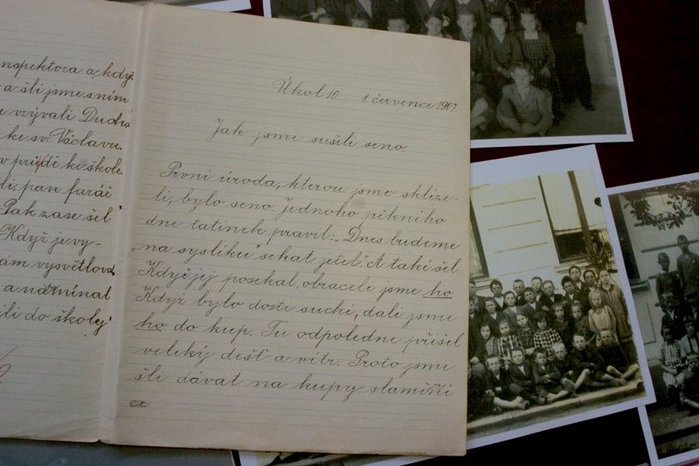 nspektora a, když
a šli jsme s ním
vzývali Ducha
ke sv. Václavu
ke škole
li, pan farář
Pak zase šel
Když je vy-
ám vysvětlova
a napomínal
ili do školy
Úkol 10. 8. července 1907
Jak jsme sušili seno
První úroda, kterou jsme sklize-
li, bylo seno. Jednoho pěkného
dne tatínek pravil: „Dnes budeme
„na syslíku" sekat jetel". A také šel.
Když jej posekal, obraceli jsme ho
Když bylo dosti suché, dali jsme
ho do kup. Tu odpoledne přišel
veliký déšť a vítr. Proto jsme
šli dávat na kupy
ce